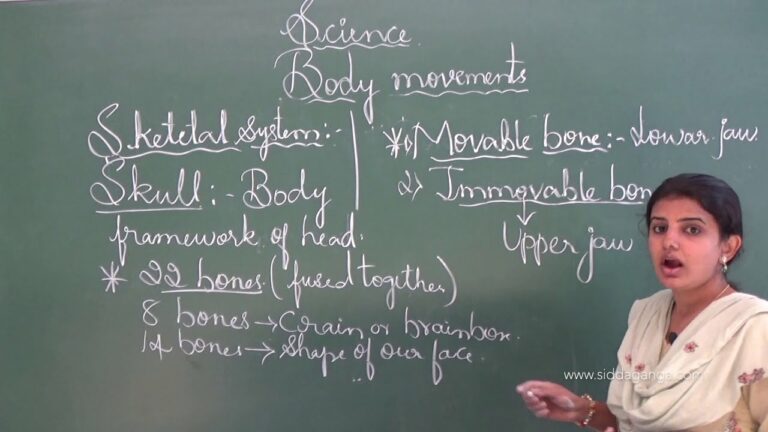 Science
Body movements
Sketetal System:-
Skull:- Body
framework of head.
* 22 bones. (fused together)
8 bones → Crain or brainbox.
14 bones → Shape of our face.
* 1) Movable bone:- Lowar jaw
2) Immovable bon
↓
Upper jaw
www.siddaganga.com/